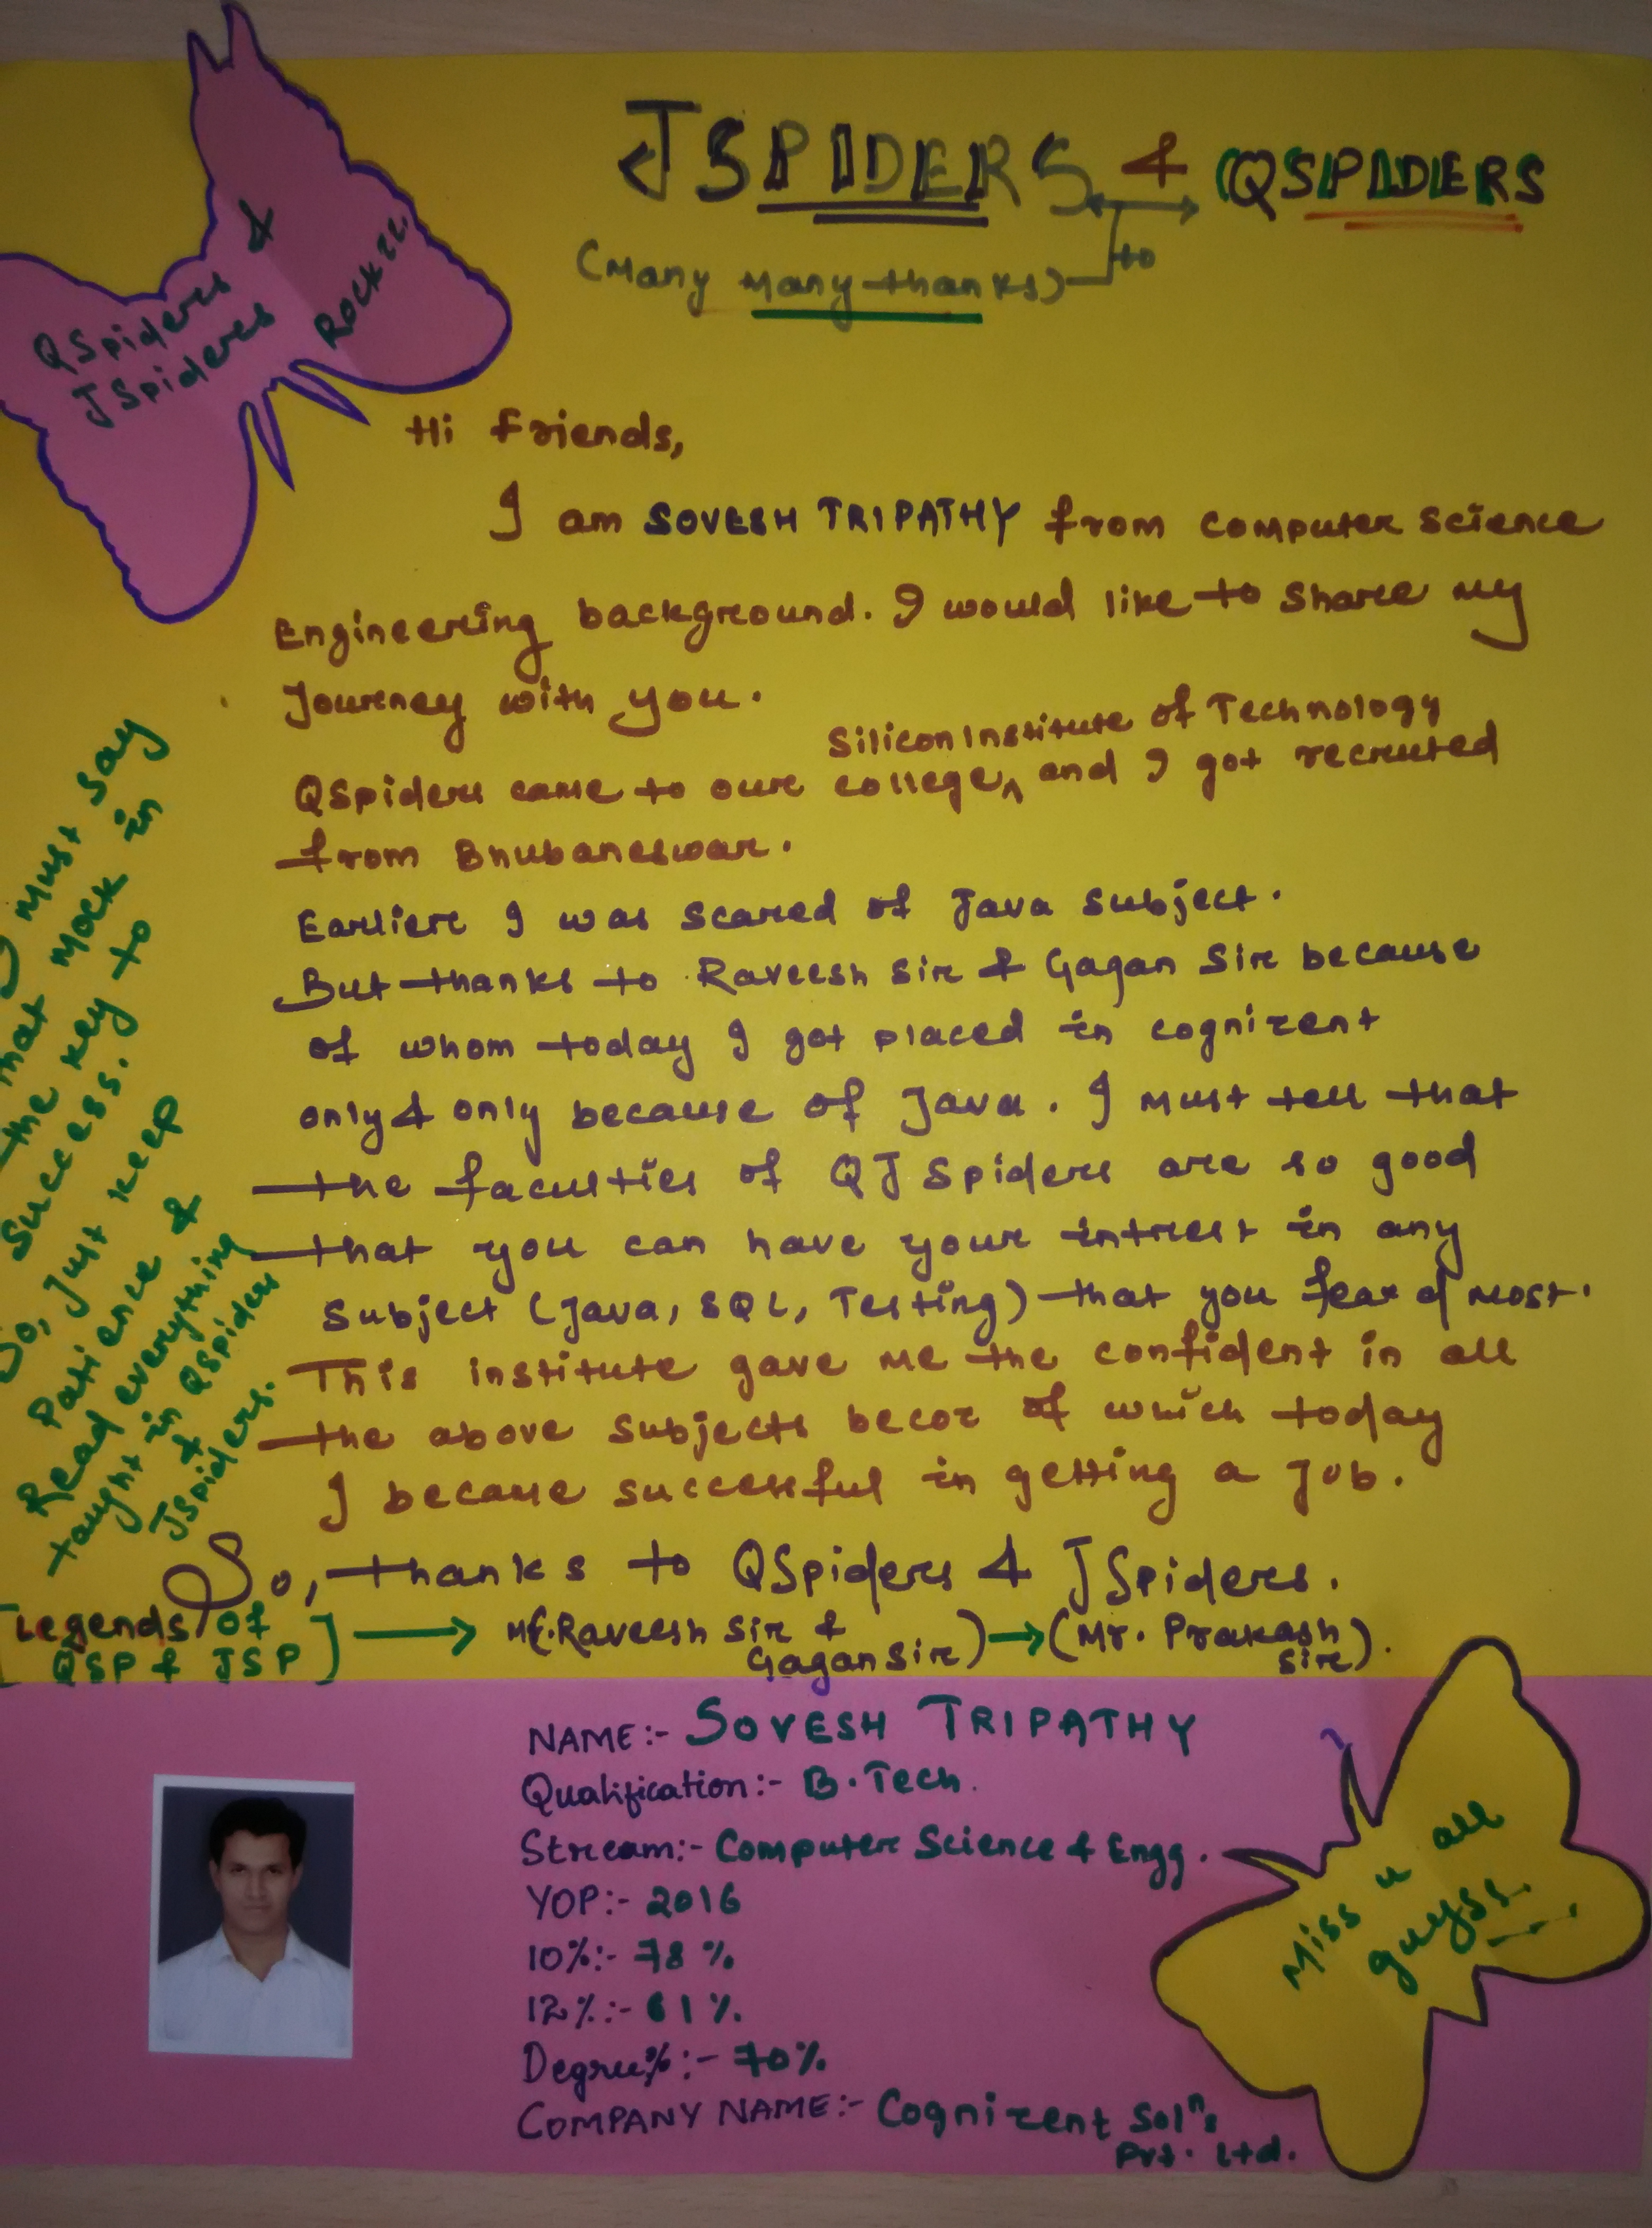 JSPIDERS & QSPIDERS
(Many Many thanks) to
QSpiders &
JSpiders
Rockzz.
Hi Friends,
I am SOVESH TRIPATHY from Computer Science
Engineering background. I would like to share my
Journey with you.
Silicon Institute of Technology
QSpiders came to our college, and I got recruited
from Bhubaneswar.
Earlier I was scared of Java subject.
But thanks to Raveesh Sir & Gagan Sir because
of whom today I got placed in cognizent
only & only because of Java. I must tell that
the faculties of QJSpiders are so good
that you can have your intrest in any
Subject (Java, SQL, Testing) that you fear of most.
This institute gave me the confident in all
the above subjects becoz of which today
I became successful in getting a job.
So, thanks to QSpiders & JSpiders.
[Legends of
QSP & JSP] → Mr. Raveesh Sir &
Gagan Sir) → (Mr. Prakash
Sir).
I must say
that mock in
the key to
success.
So, Just keep
Patience &
Read everything
taught in QSpiders
&
JSpiders.
NAME:- SOVESH TRIPATHY
Qualification:- B.Tech.
Stream:- Computer Science & Engg.
YOP:- 2016
10%:- 78 %
12%:- 61 %.
Degree%:- 70%
COMPANY NAME:- Cognizent Soln's
Pvt. Ltd.
Miss u all
guyss...